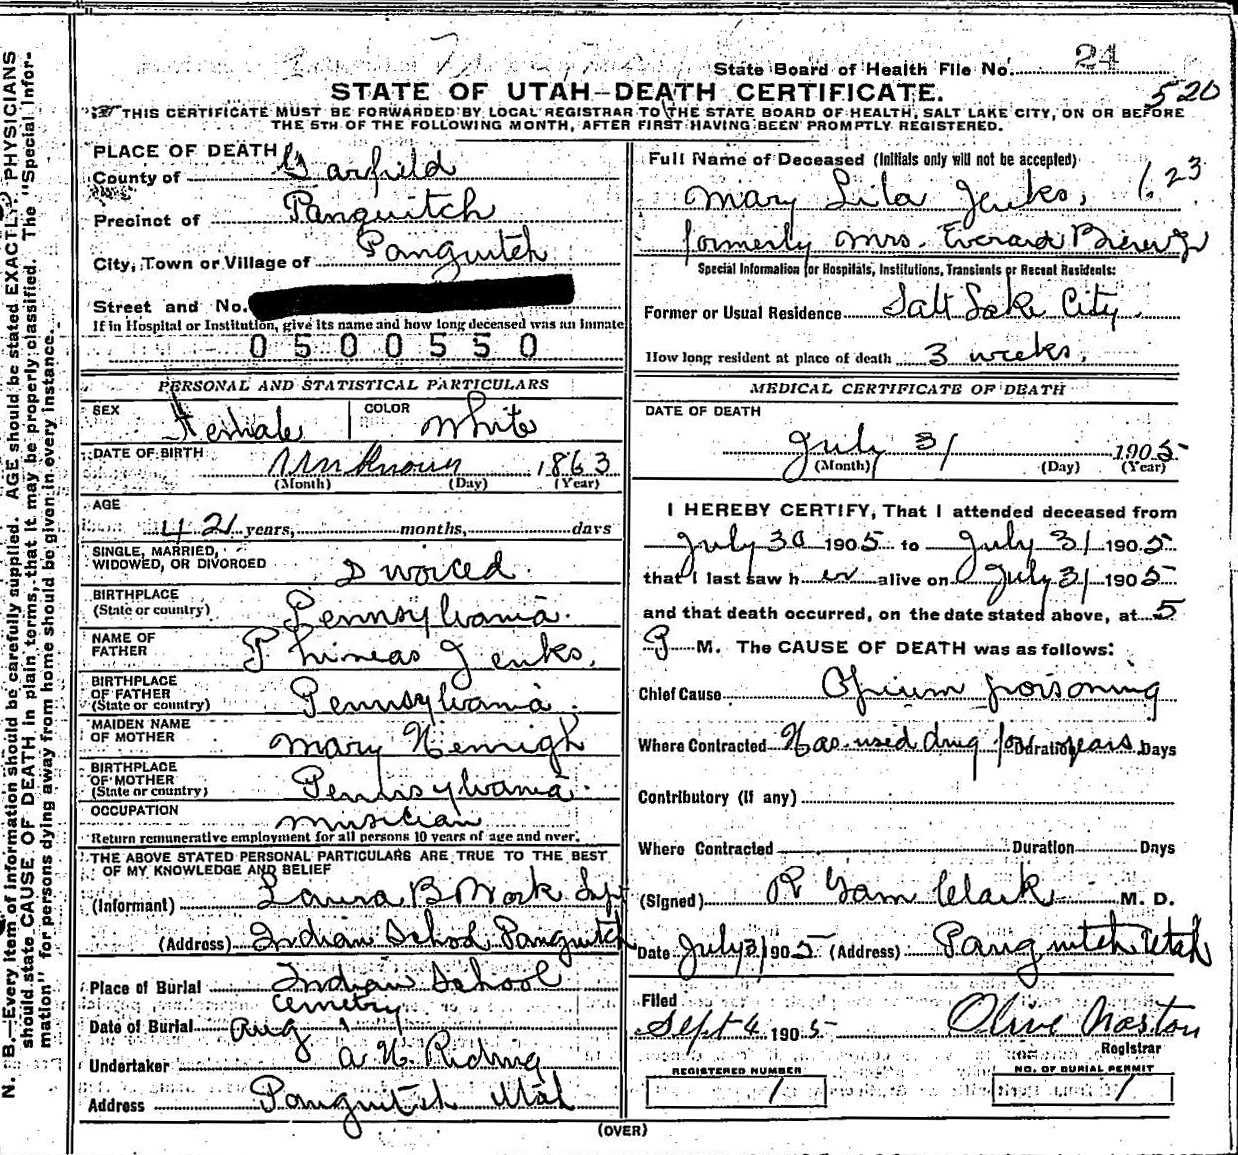 State Board of Health File No. 24
520
STATE OF UTAH—DEATH CERTIFICATE.
THIS CERTIFICATE MUST BE FORWARDED BY LOCAL REGISTRAR TO THE STATE BOARD OF HEALTH, SALT LAKE CITY, ON OR BEFORE
THE 5TH OF THE FOLLOWING MONTH, AFTER FIRST HAVING BEEN PROMPTLY REGISTERED.
PLACE OF DEATH
County of Garfield
Precinct of Panguitch
City, Town or Village of Panguitch
Street and No.
If in Hospital or Institution, give its name and how long deceased was an inmate
0500550
PERSONAL AND STATISTICAL PARTICULARS
SEX Female COLOR White
DATE OF BIRTH Unknown 1863
(Month) (Day) (Year)
AGE
42 years, months, days
SINGLE, MARRIED,
WIDOWED, OR DIVORCED Divorced
BIRTHPLACE
(State or country) Pennsylvania.
NAME OF
FATHER Phineas Jenks.
BIRTHPLACE
OF FATHER
(State or country) Pennsylvania.
MAIDEN NAME
OF MOTHER Mary
BIRTHPLACE
OF MOTHER
(State or country) Pennsylvania.
OCCUPATION musician
Return remunerative employment for all persons 10 years of age and over.
THE ABOVE STATED PERSONAL PARTICULARS ARE TRUE TO THE BEST
OF MY KNOWLEDGE AND BELIEF
(Informant) Laura B Work Supt
(Address) Indian School Panguitch
Place of Burial Indian School
Cemetry
Date of Burial Aug 1
Undertaker a. N. Riding
Address Panguitch Utah
Full Name of Deceased (Initials only will not be accepted)
Mary Lila Jenks, 1.23
formerly Mrs. Everard
Special Information for Hospitals, Institutions, Transients or Recent Residents:
Former or Usual Residence Salt Lake City.
How long resident at place of death 3 weeks.
MEDICAL CERTIFICATE OF DEATH
DATE OF DEATH
July 31 1905
(Month) (Day) (Year)
I HEREBY CERTIFY, That I attended deceased from
July 30 1905 to July 31 1905
that I last saw her alive on July 31 1905
and that death occurred, on the date stated above, at 5
P M. The CAUSE OF DEATH was as follows:
Chief Cause Opium poisoning
Where Contracted Has used drug for years. Duration Days
Contributory (if any)
Where Contracted Duration Days
(Signed) R Clark M. D.
Date July 31 1905 (Address) Panguitch Utah
Filed
Sept 4 1905 Olive
Registrar
REGISTERED NUMBER
1
NO. OF BURIAL PERMIT
1
(OVER)
N. B.—Every item of information should be carefully supplied. AGE should be stated EXACTLY. PHYSICIANS
should state CAUSE OF DEATH in plain terms, that it may be properly classified. The "Special Infor-
mation" for persons dying away from home should be given in every instance.